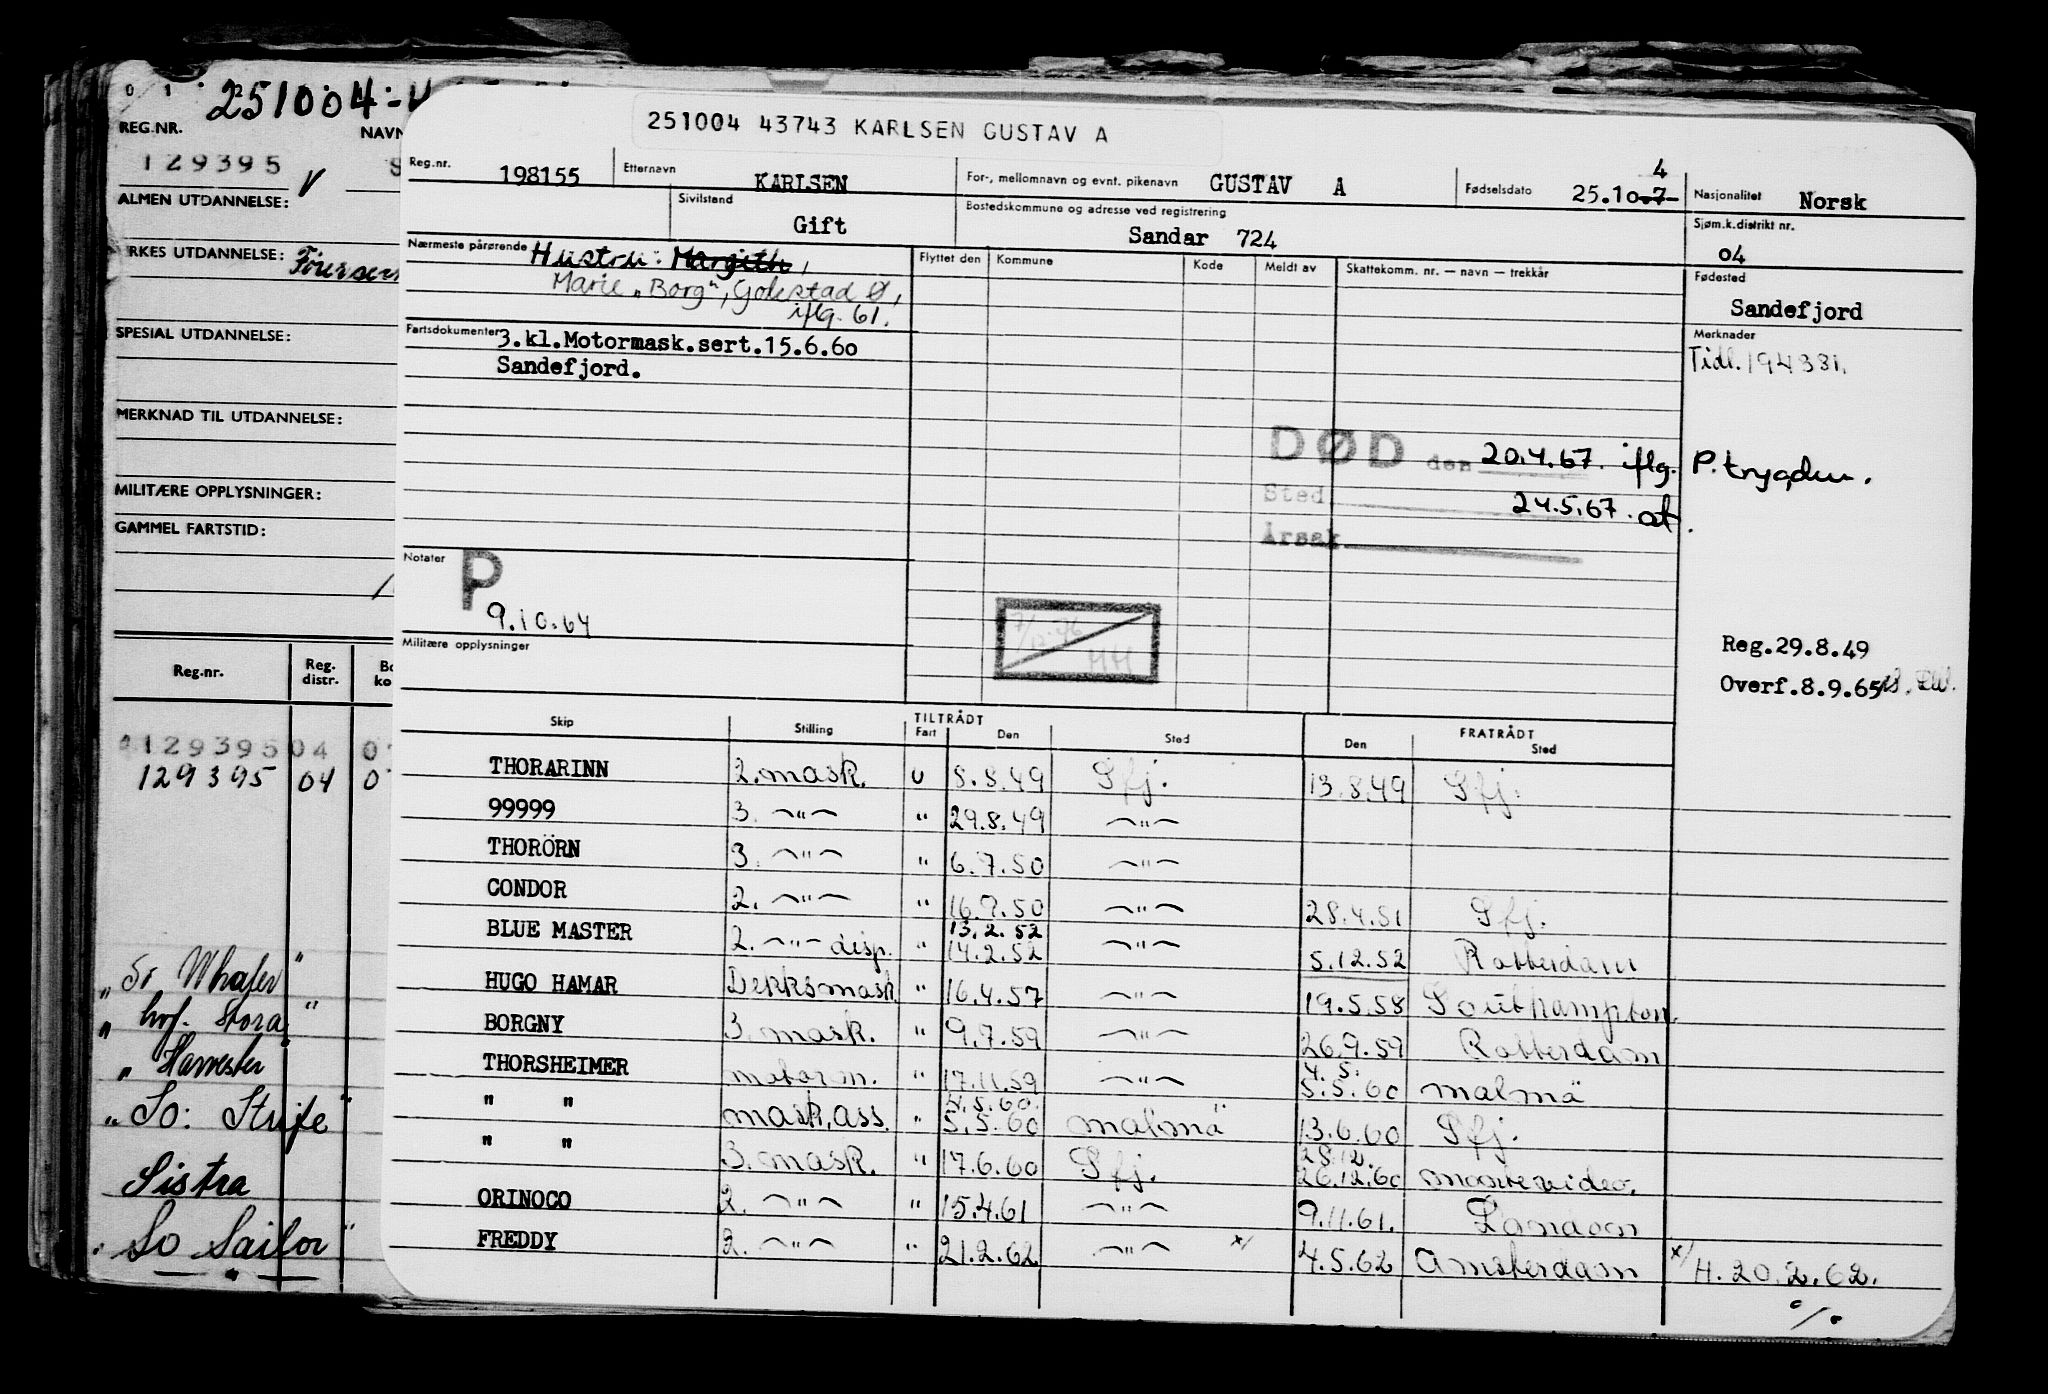 0 1 251004-
REG.NR. NAVN
129395 V
ALMEN UTDANNELSE:
YRKES UTDANNELSE:
SPESIAL UTDANNELSE:
MERKNAD TIL UTDANNELSE:
MILITÆRE OPPLYSNINGER:
GAMMEL FARTSTID:
Reg.nr. Reg. distr. Bo ko
129395 04 0
129395 04 0
"So Whaler"
" hvf. Stora "
" Harvester
" So: Strife "
Sistra
" So Sailor "
251004 43743 KARLSEN GUSTAV A
Reg.nr. 198155 Etternavn KARLSEN For-, mellomnavn og evnt. pikenavn GUSTAV A Fødselsdato 25.10.7 4 Nasjonalitet Norsk
Sivilstand Gift Bostedskommune og adresse ved registrering Sandar 724 Sjøm.k.distrikt nr. 04
Nærmeste pårørende Hustru: Margith,
Marie "Borg", Gokstad Ø,
iflg. 61.
Flyttet den Kommune Kode Meldt av Skattekomm. nr. — navn — trekkår
Fødested Sandefjord
Fartsdokumenter 3.kl.Motormask.sert.15.6.60
Sandefjord.
Merknader
Tidl. 194381.
DØD den 20.4.67. iflg. P.trygden.
Sted 24.5.67. at.
Årsak
Notater P
9.10.64
7/12-76
HH
Militære opplysninger
Reg.29.8.49
Overf.8.9.65
Skip Stilling TILTRÅDT Fart Den Sted FRATRÅDT Den Sted
THORARINN 2.mask. U 8.8.49 Sfj. 13.8.49 Sfj.
99999 3. —"— " 29.8.49 —"—
THORÖRN 3. —"— " 6.7.50 —"—
CONDOR 2. —"— " 16.7.50 —"— 28.4.51 Sfj.
13.2.52
BLUE MASTER 2. —"— disp. " 14.2.52 —"— 5.12.52 Rotterdam
HUGO HAMAR Dekksmask. " 16.4.57 —"— 19.5.58 Southampton.
BORGNY 3. mask. " 9.7.59 —"— 26.9.59 Rotterdam
4.5.
THORSHEIMER motorm. " 17.11.59 —"— 5.5.60 malmä
4.5.60.
" " mask.ass. " 5.5.60 malmä 13.6.60 Sfj.
28.12.
" " 3. mask. " 17.6.60 Sfj. 26.12.60 montevideo.
ORINOCO 2. —"— " 15.4.61 —"— 9.11.61. London
FREDDY 2. —"— " 21.2.62 —"— x/ 4.5.62 Amsterdam x/ H. 20.2.62.
o/.